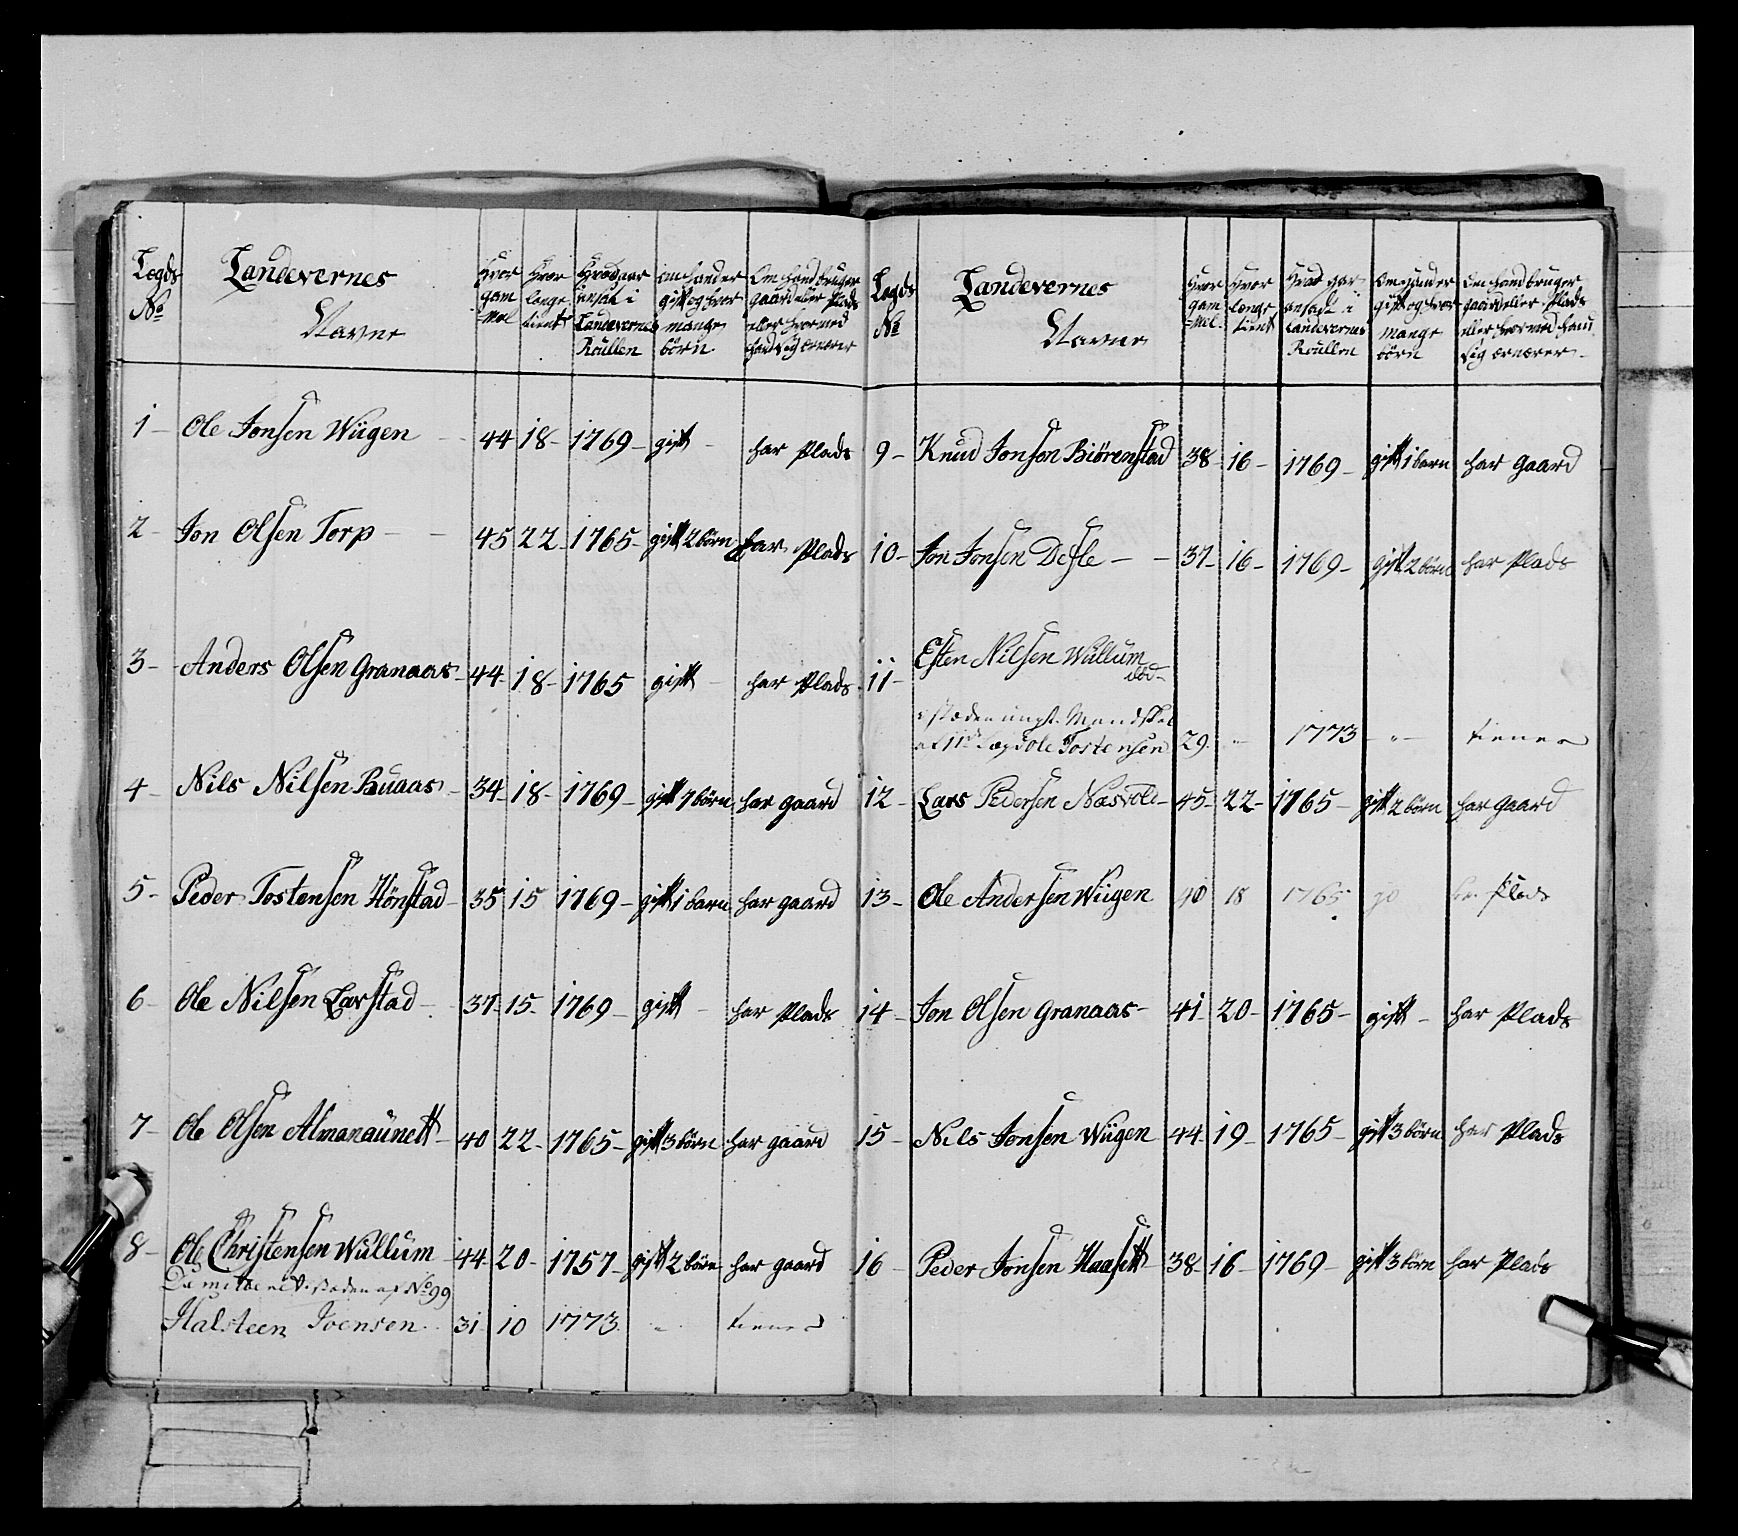 Legds No
Landevernes Navne
Hvor gam mel
Hvor lenge tient
Hvad aar ansat i Landevernes Roullen
om hand er gift og hvor mange börn
Om hand bruger gaard eller Plads eller hvormed hand sig ernærer
1 - Ole Jonsen Wiigen - 44 18 - 1769 - gift - har Plads
2 - Jon Olsen Torp - - 45 22 - 1765 - gift 2 börn har Plads
3 - Anders Olsen Granaas - 44 - 18 - 1765 gift - har Plads
4 - Nils Nilsen Buaas - 34 - 18 - 1769 - gift 7 börn har gaard
5 - Peder Tostensen Hönstad - 35 15 1769 - gift 1 barn har gaard
6 - Ole Nilsen Lorstad - 37 - 15 - 1769 - gift - har Plads
7 - Ole Olsen Almaaunett - 40 22 - 1765 - gift 3 börn har gaard
8 - Ole Christensen Wullum 44 - 20 - 1757 - gift 2 börn har gaard
steden af No 99
Halsteen Joensen 31 10 1773 " tiener
Legds No
Landevernes Navne
Hvor gam mel
Hvor længe tient
Hvad aar ansadt i Landevernes Roullen
Om hand er gift og hvor mange börn
Om hand bruger gaard eller Plads eller hvor med hand sig ernærer -
9 - Knud Jonsen Biörenstad 38 16 - 1769 - gift 1 barn har gaard
10 - Jon Jonsen Desle - - 37 - 16 - 1769 - gift 2 börn har Plads
11 - Esten Nilsen Wullum
död -
i steden ungt Mandskab
af 11te Lægd Ole Tostensen 29. " 1773 - " - tiener
12 - Lars Pedersen Næsvold - 45 - 22 - 1765 - gift 2 börn har gaard
13 - Ole Andersen Wiigen 40 18 1765 har Plads
14 - Jon Olsen Granaas - 41 20 - 1765 - gift - har Plads
15 - Nils Jonsen Wiigen 44 - 19 - 1765 - gift 3 börn har Plads
16 - Peder Jonsen Haasett 38 - 16 - 1769 - gift 3 börn har Plads